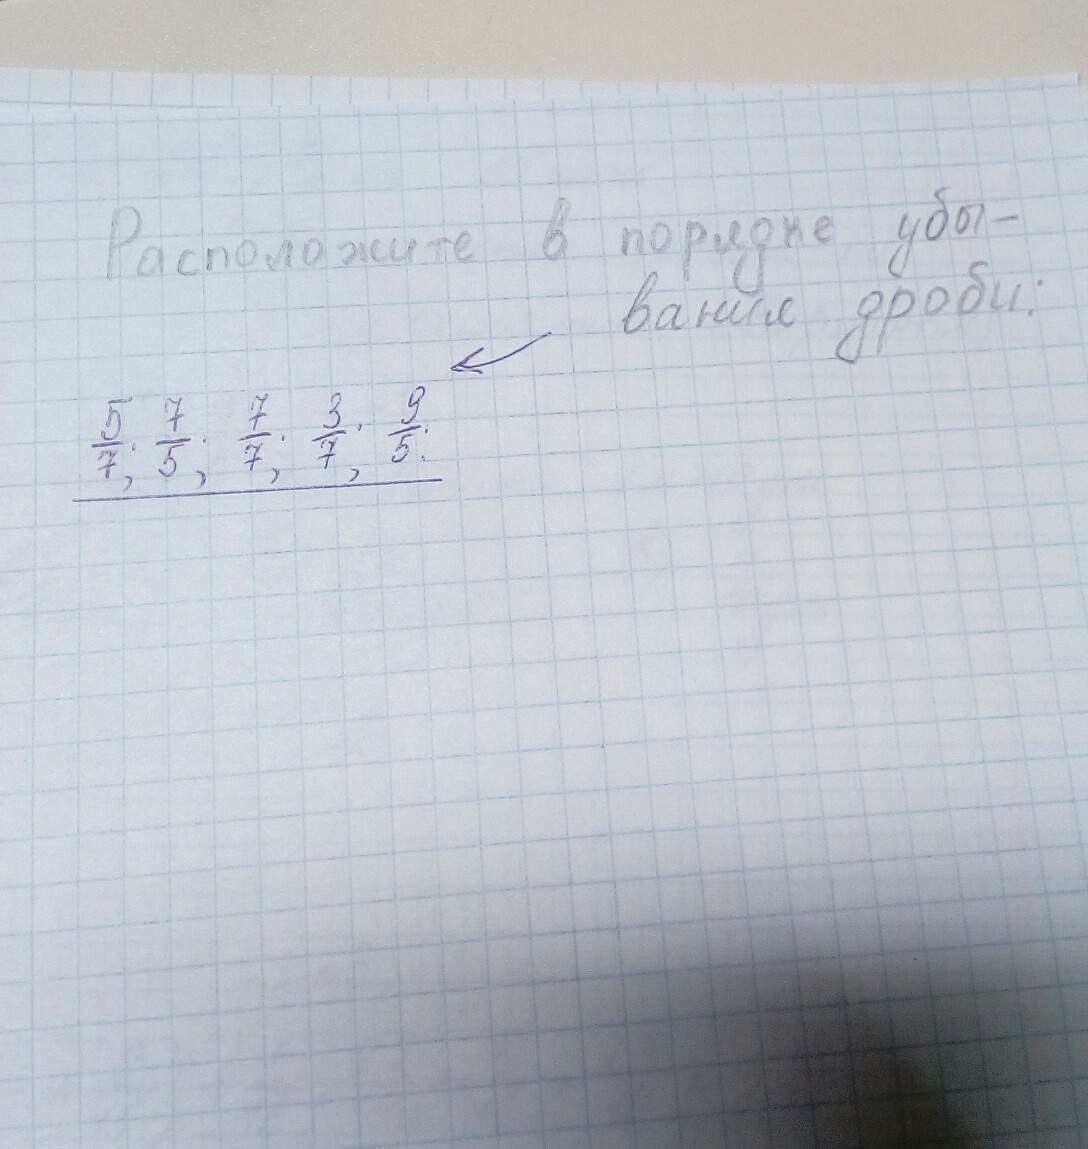 Расположите в порядке убы-
вания дроби:
5/7; 7/5; 7/7; 3/7; 9/5: